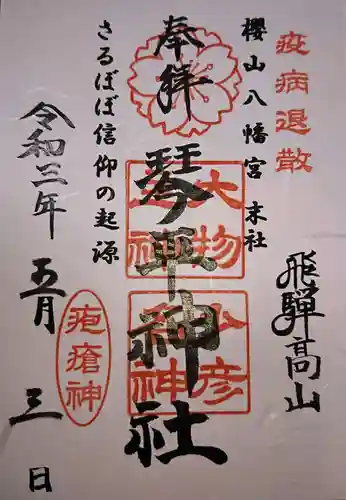 疫病退散
飛騨高山
櫻山八幡宮 末社
奉拝
琴平神社
大物
主神
少彦
名神
さるぼぼ信仰の起源
疱瘡神
令和三年 五月 三 日